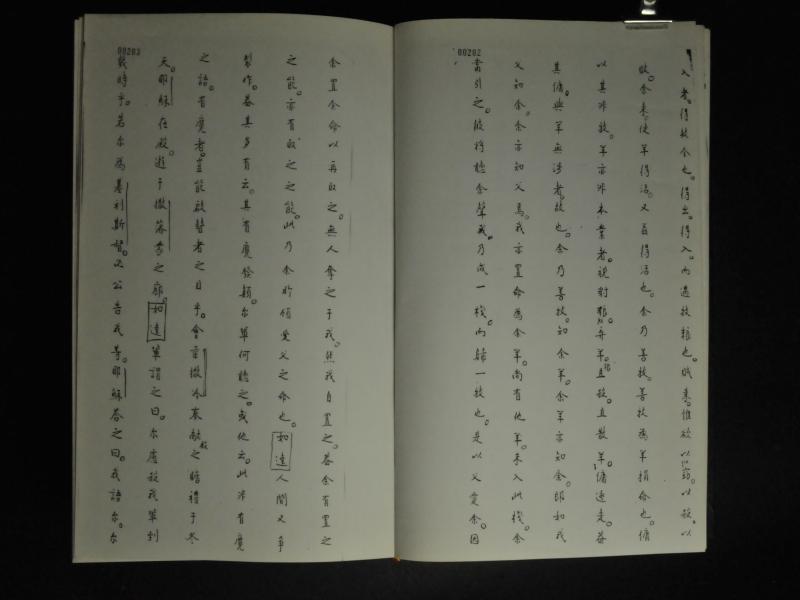 00202
入者。得救介也。得出。得入。而遇牧粮也。賊来。惟欲以窃。以殺。以
敗。余来。使羊得活。又当得活也。余乃善牧。善牧為羊捐命也。傭
以其非牧。羊亦非本業者。視豺狼。弃羊且救。且散羊。傭速走。盖
其傭與羊無涉者故也。余乃善牧。知余羊。余羊亦知余。即如我
父知余。余亦知父焉。我亦置命為余羊。尚有他羊。未入此棧。余
當引之。彼将聽余聲哉。乃成一棧。而歸一牧也。是以父愛余。因
00203
余置余命以再取之。無人奪之于我。然我自置之。盖余有置之
之能。亦有取之之能。此乃余所領受父之命也。如達人間又争
製作。盖其多有云。其有魔發顛。尔輩何聽之。或他云。此非有魔
之語。有魔者。豈能啟瞽者之目乎。會当撒冷褁献殿之瞻禮于冬
天。耶穌在殿。遊于撒落蒙之廊。如達輩謂之曰。尔虚殺我輩到
幾時乎。若尔為基利斯督。必公告我等。耶穌答之曰。我語尔。尔